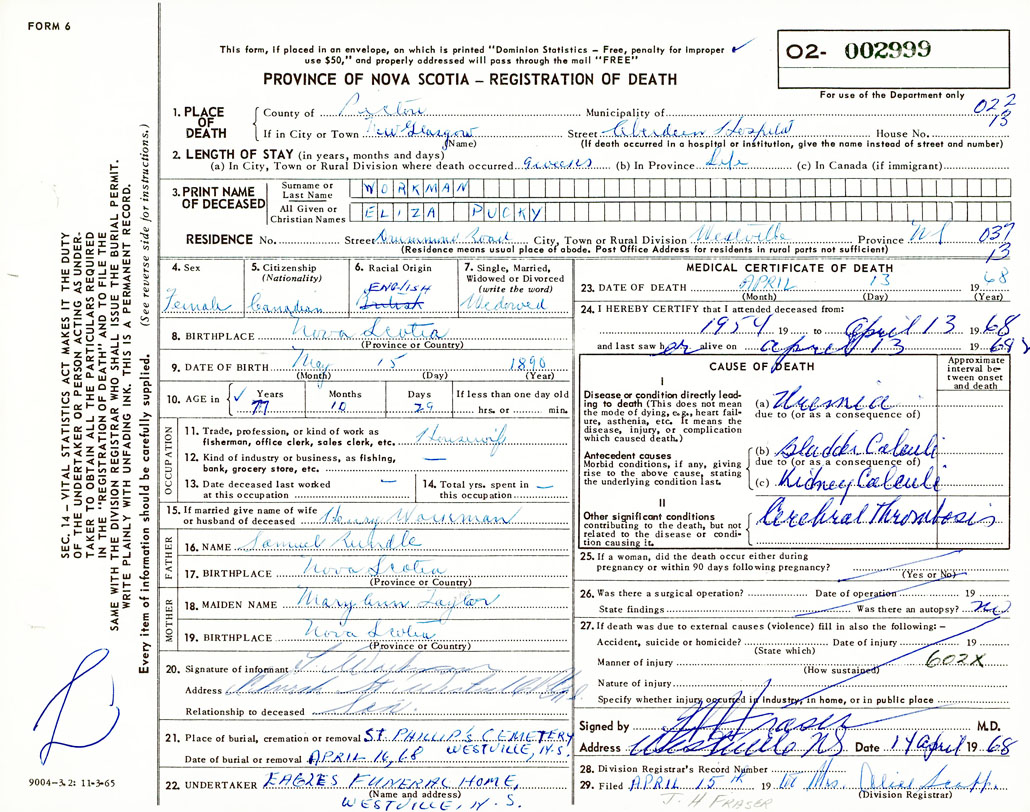 FORM 6
This form, if placed in an envelope, on which is printed "Dominion Statistics – Free, penalty for improper
use $50," and properly addressed will pass through the mail "FREE"
O2- 002999
PROVINCE OF NOVA SCOTIA – REGISTRATION OF DEATH
For use of the Department only
022
13
1. PLACE OF DEATH
County of Pictou Municipality of
If in City or Town New Glasgow Street Aberdeen Hospital House No.
(Name) (If death occurred in a hospital or institution, give the name instead of street and number)
2. LENGTH OF STAY (in years, months and days)
(a) In City, Town or Rural Division where death occurred (b) In Province Life (c) In Canada (if immigrant)
3. PRINT NAME OF DECEASED
Surname or Last Name WORKMAN
All Given or Christian Names ELIZA PUCKY
RESIDENCE No. Street Drummond Road City, Town or Rural Division Westville Province NS
037
13
(Residence means usual place of abode. Post Office Address for residents in rural parts not sufficient)
4. Sex
Female
5. Citizenship (Nationality)
Canadian
6. Racial Origin
ENGLISH
British
7. Single, Married, Widowed or Divorced (write the word)
Widowed
8. BIRTHPLACE Nova Scotia
(Province or Country)
9. DATE OF BIRTH May 15 1890
(Month) (Day) (Year)
10. AGE in ✓ Years Months Days If less than one day old
77 10 29 hrs. or min.
OCCUPATION
11. Trade, profession, or kind of work as fisherman, office clerk, sales clerk, etc. Housewife
12. Kind of industry or business, as fishing, bank, grocery store, etc. —
13. Date deceased last worked at this occupation — 14. Total yrs. spent in this occupation —
15. If married give name of wife or husband of deceased Henry Workman
FATHER
16. NAME Samuel Rundle
17. BIRTHPLACE Nova Scotia
(Province or Country)
MOTHER
18. MAIDEN NAME Mary Ann Taylor
19. BIRTHPLACE Nova Scotia
(Province or Country)
20. Signature of informant Workman
Address Church St Westville
Relationship to deceased Son
21. Place of burial, cremation or removal ST. PHILLIP'S CEMETERY
WESTVILLE, N.S.
Date of burial or removal APRIL 16, 68
22. UNDERTAKER EAGLES FUNERAL HOME,
(Name and address)
WESTVILLE, N.S.
MEDICAL CERTIFICATE OF DEATH
23. DATE OF DEATH APRIL 13 1968
(Month) (Day) (Year)
24. I HEREBY CERTIFY that I attended deceased from:
1954 19 to April 13 1968
and last saw her alive on April 13 1968
CAUSE OF DEATH
Approximate interval between onset and death
I
Disease or condition directly leading to death (This does not mean the mode of dying, e.g., heart failure, asthenia, etc. It means the disease, injury, or complication which caused death.)
(a) Uremia
due to (or as a consequence of)
Antecedent causes
Morbid conditions, if any, giving rise to the above cause, stating the underlying condition last.
(b) Bladder Calculi
due to (or as a consequence of)
(c) Kidney Calculi
II
Other significant conditions contributing to the death, but not related to the disease or condition causing it.
Cerebral Thrombosis
25. If a woman, did the death occur either during pregnancy or within 90 days following pregnancy?
(Yes or No)
26. Was there a surgical operation? Date of operation 19
State findings Was there an autopsy? No
27. If death was due to external causes (violence) fill in also the following: –
Accident, suicide or homicide? Date of injury 19
(State which)
Manner of injury 602X
(How sustained)
Nature of injury
Specify whether injury occurred in industry, in home, or in public place
Signed by Fraser M.D.
Address Westville NS Date 14 April 1968
28. Division Registrar's Record Number
29. Filed APRIL 15th 19 Mrs. Alice
(Division Registrar)
J. H FRASER
SEC. 14 – VITAL STATISTICS ACT MAKES IT THE DUTY
OF THE UNDERTAKER OR PERSON ACTING AS UNDER-
TAKER TO OBTAIN ALL THE PARTICULARS REQUIRED
IN THE "REGISTRATION OF DEATH" AND TO FILE THE
SAME WITH THE DIVISION REGISTRAR WHO SHALL ISSUE THE BURIAL PERMIT.
WRITE PLAINLY WITH UNFADING INK. THIS IS A PERMANENT RECORD.
Every item of information should be carefully supplied. (See reverse side for instructions.)
9004-3.2: 11-3-65